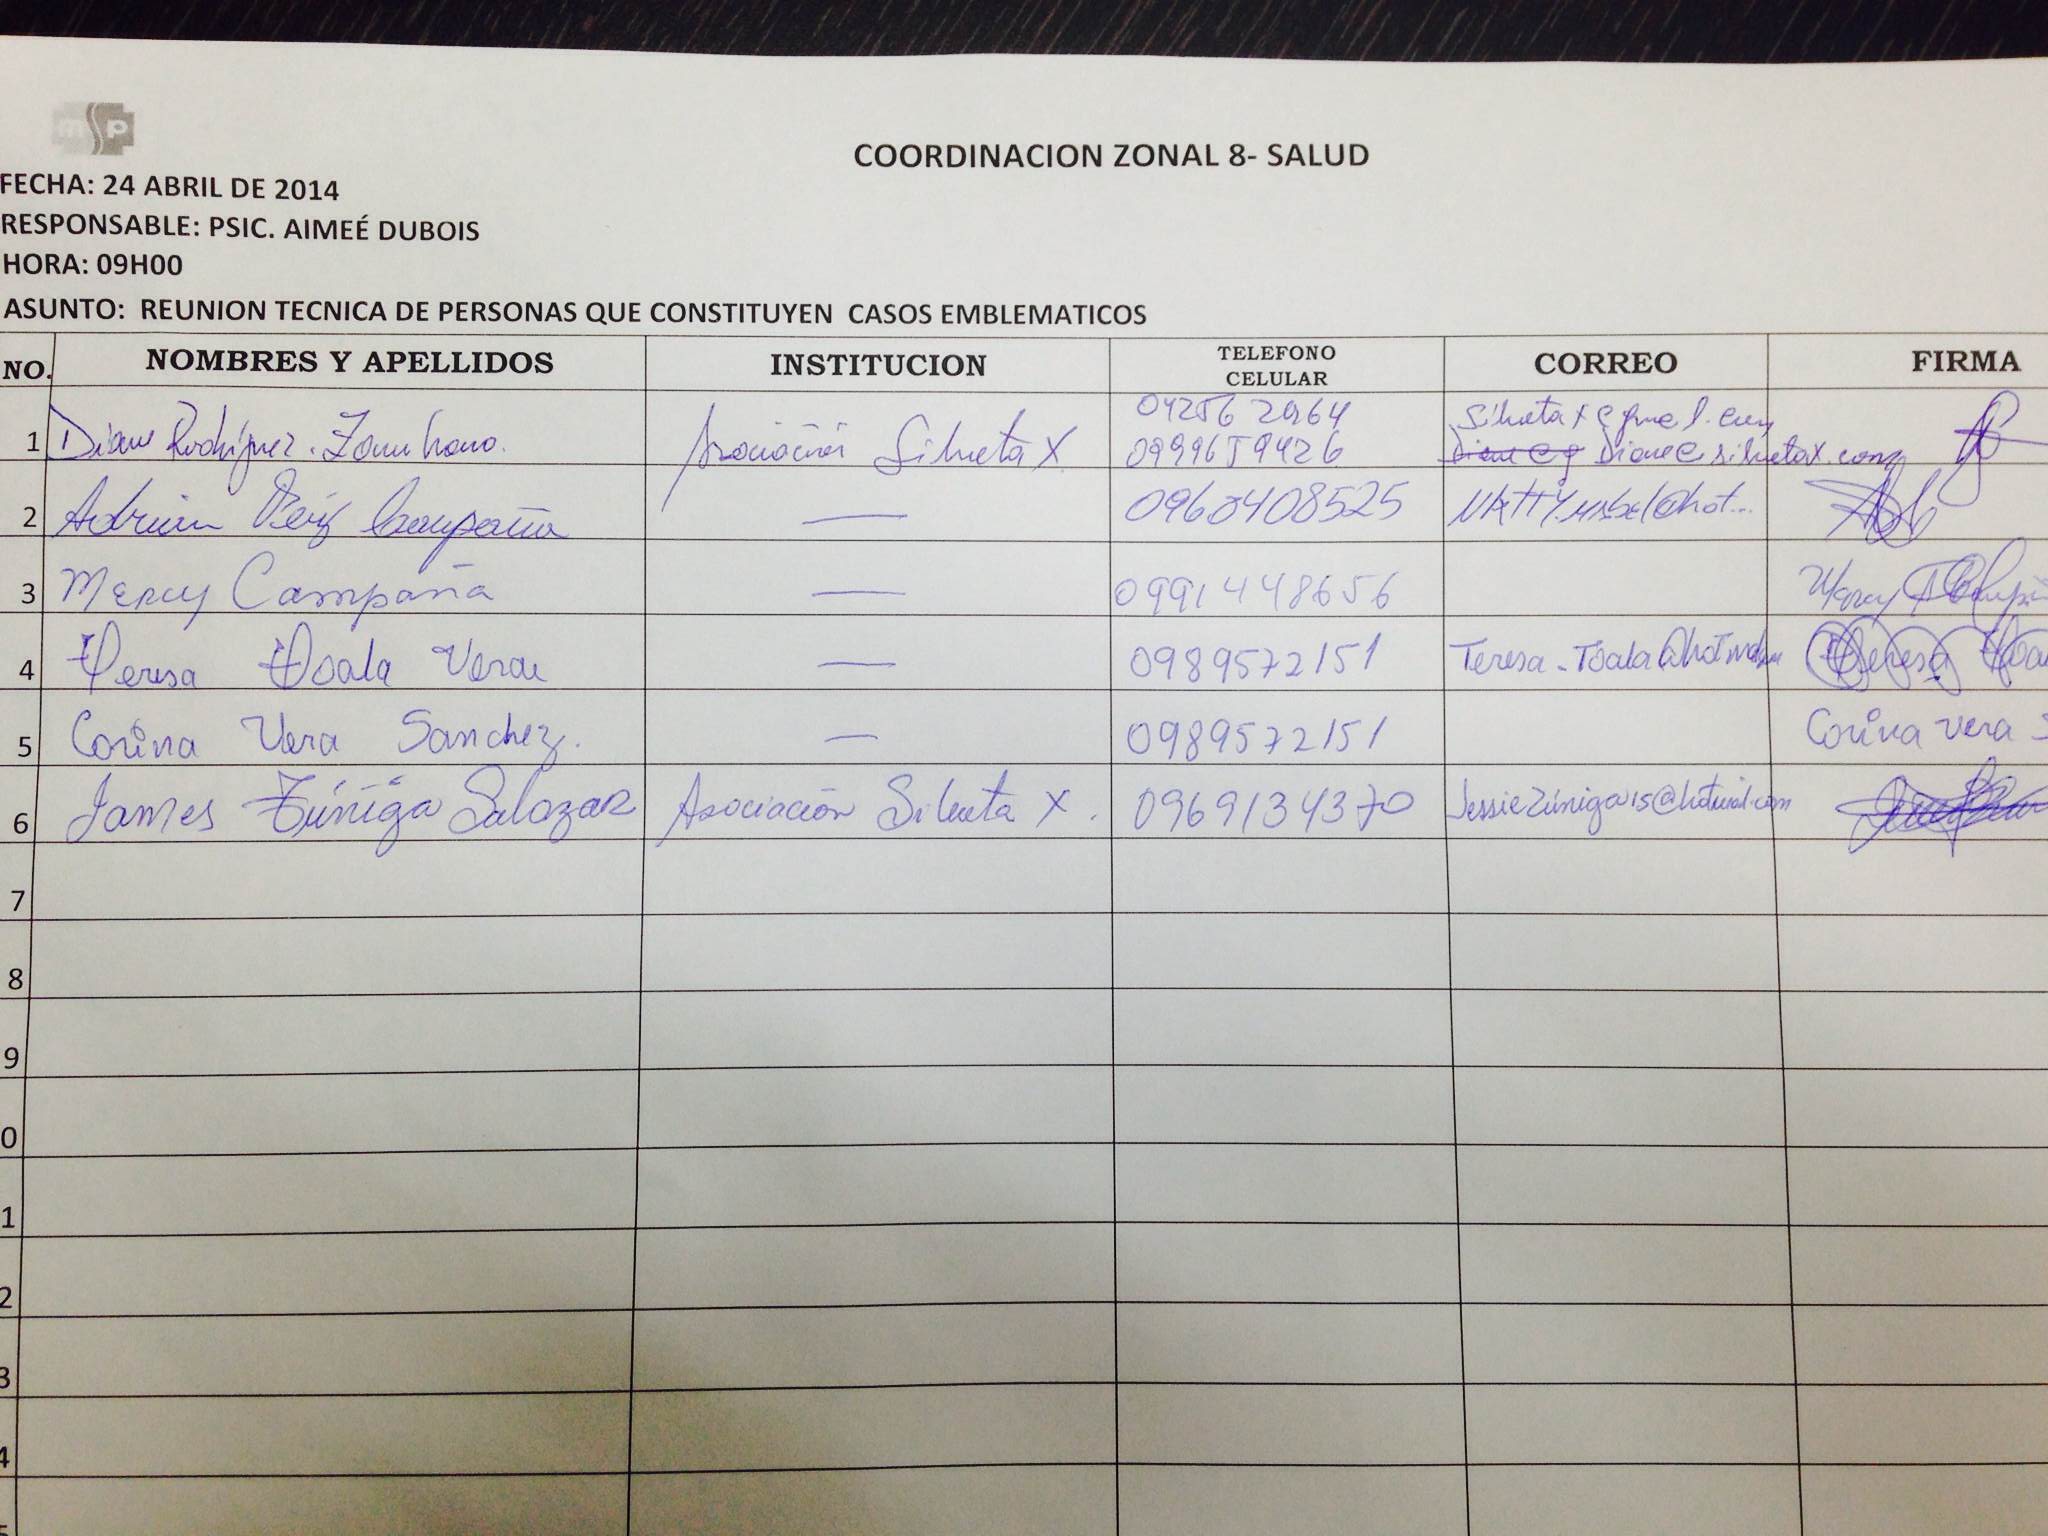 msp
COORDINACION ZONAL 8- SALUD
FECHA: 24 ABRIL DE 2014
RESPONSABLE: PSIC. AIMEÉ DUBOIS
HORA: 09H00
ASUNTO: REUNION TECNICA DE PERSONAS QUE CONSTITUYEN CASOS EMBLEMATICOS
NO. NOMBRES Y APELLIDOS INSTITUCION TELEFONO CELULAR CORREO FIRMA
1 Diane Rodríguez Asociación Silueta X 0999659426 Diane@siluetax.com
2 Adrian Campaña — 0960408525
3 Mercy Campaña — 0991448656 Mercy
4 Teresa Toala Vera — 0989572151 Teresa
5 Corina Vera Sanchez. — 0989572151 Corina Vera S
6 James Zúñiga Salazar Asociación Silueta X. 0969134370 JessieZúniga15@hotmail.com
7
8
9
0
1
2
3
4
5